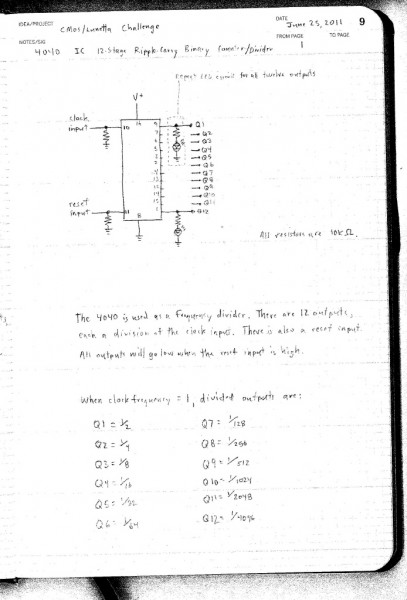 IDEA/PROJECT CMos/Lunetta Challenge
DATE June 25, 2011 9
NOTES/SIG 4040 IC 12-Stage Ripple-Carry Binary Counter/Divider
FROM PAGE 1 TO PAGE
repeat LED circuit for all twelve outputs
V+
clock input
10
16
9
Q1
Q2
Q3
Q4
Q5
Q6
Q7
Q8
Q9
Q10
Q11
Q12
reset input
11
8
1
All resistors are 10k Ω.
The 4040 is used as a frequency divider. There are 12 outputs,
each a division of the clock input. There is also a reset input.
All outputs will go low when the reset input is high.
When clock frequency = 1, divided outputs are:
Q1 = 1/2 Q7 = 1/128
Q2 = 1/4 Q8 = 1/256
Q3 = 1/8 Q9 = 1/512
Q4 = 1/16 Q10 = 1/1024
Q5 = 1/32 Q11 = 1/2048
Q6 = 1/64 Q12 = 1/4096